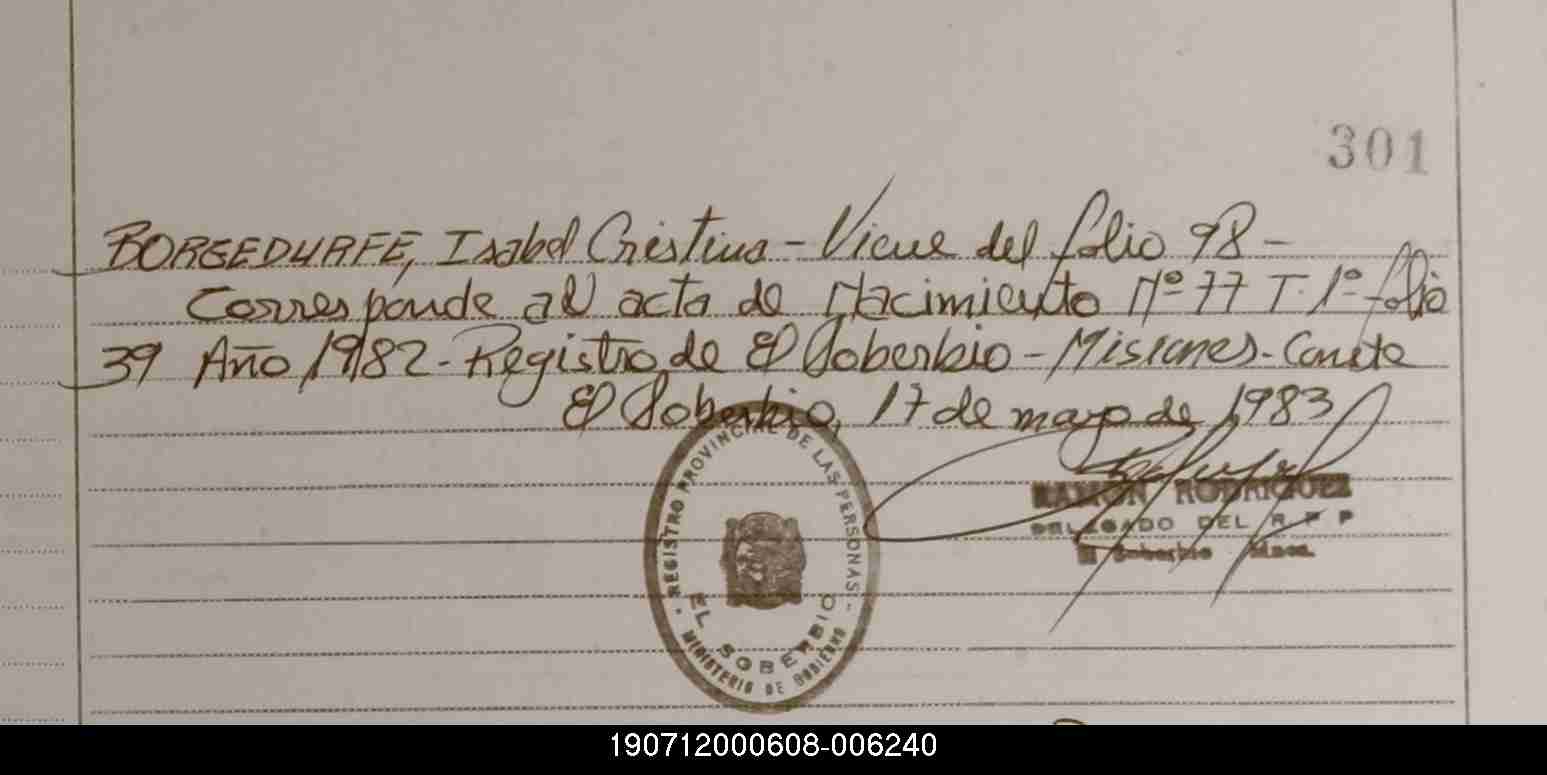 301
BORGEDURFE, Isabel Cristina - Viene del folio 98 -
Corresponde al acta de Nacimiento Nº 77 T. 1º folio
39 Año 1982 - Registro de El Soberbio - Misiones - Conste
El Soberbio, 17 de mayo de 1983
REGISTRO PROVINCIAL DE LAS PERSONAS
EL SOBERBIO
MINISTERIO DE GOBIERNO
RAMON RODRIGUEZ
DELEGADO DEL R P P
El Soberbio Mnes.
190712000608-006240